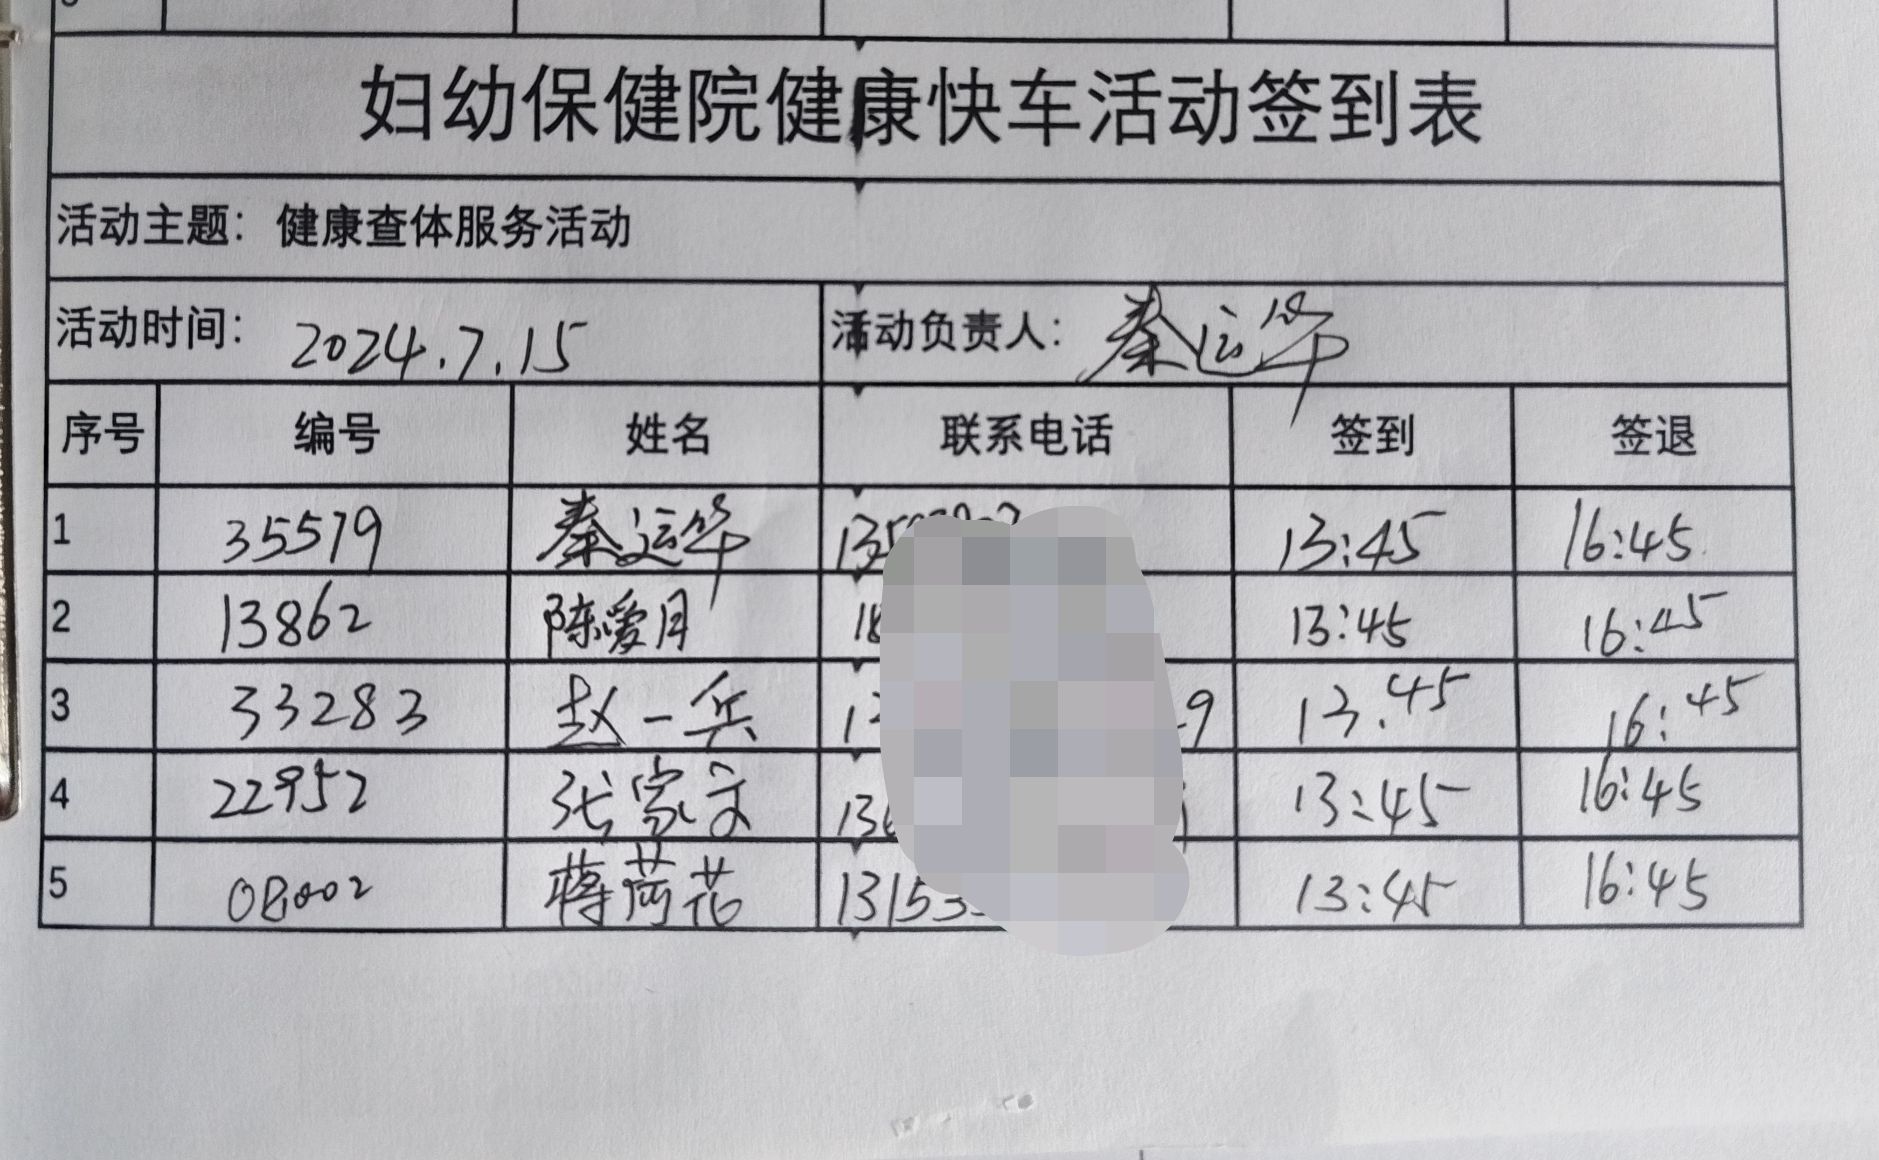 妇幼保健院健康快车活动签到表
活动主题：健康查体服务活动
活动时间：2024.7.15 活动负责人：秦运华
序号 编号 姓名 联系电话 签到 签退
1 35579 秦运华 13:45 16:45
2 13862 陈爱月 13:45 16:45
3 33283 赵一兵 13.45 16:45
4 22952 张家文 13:45 16:45
5 08002 蒋荷花 13:45 16:45